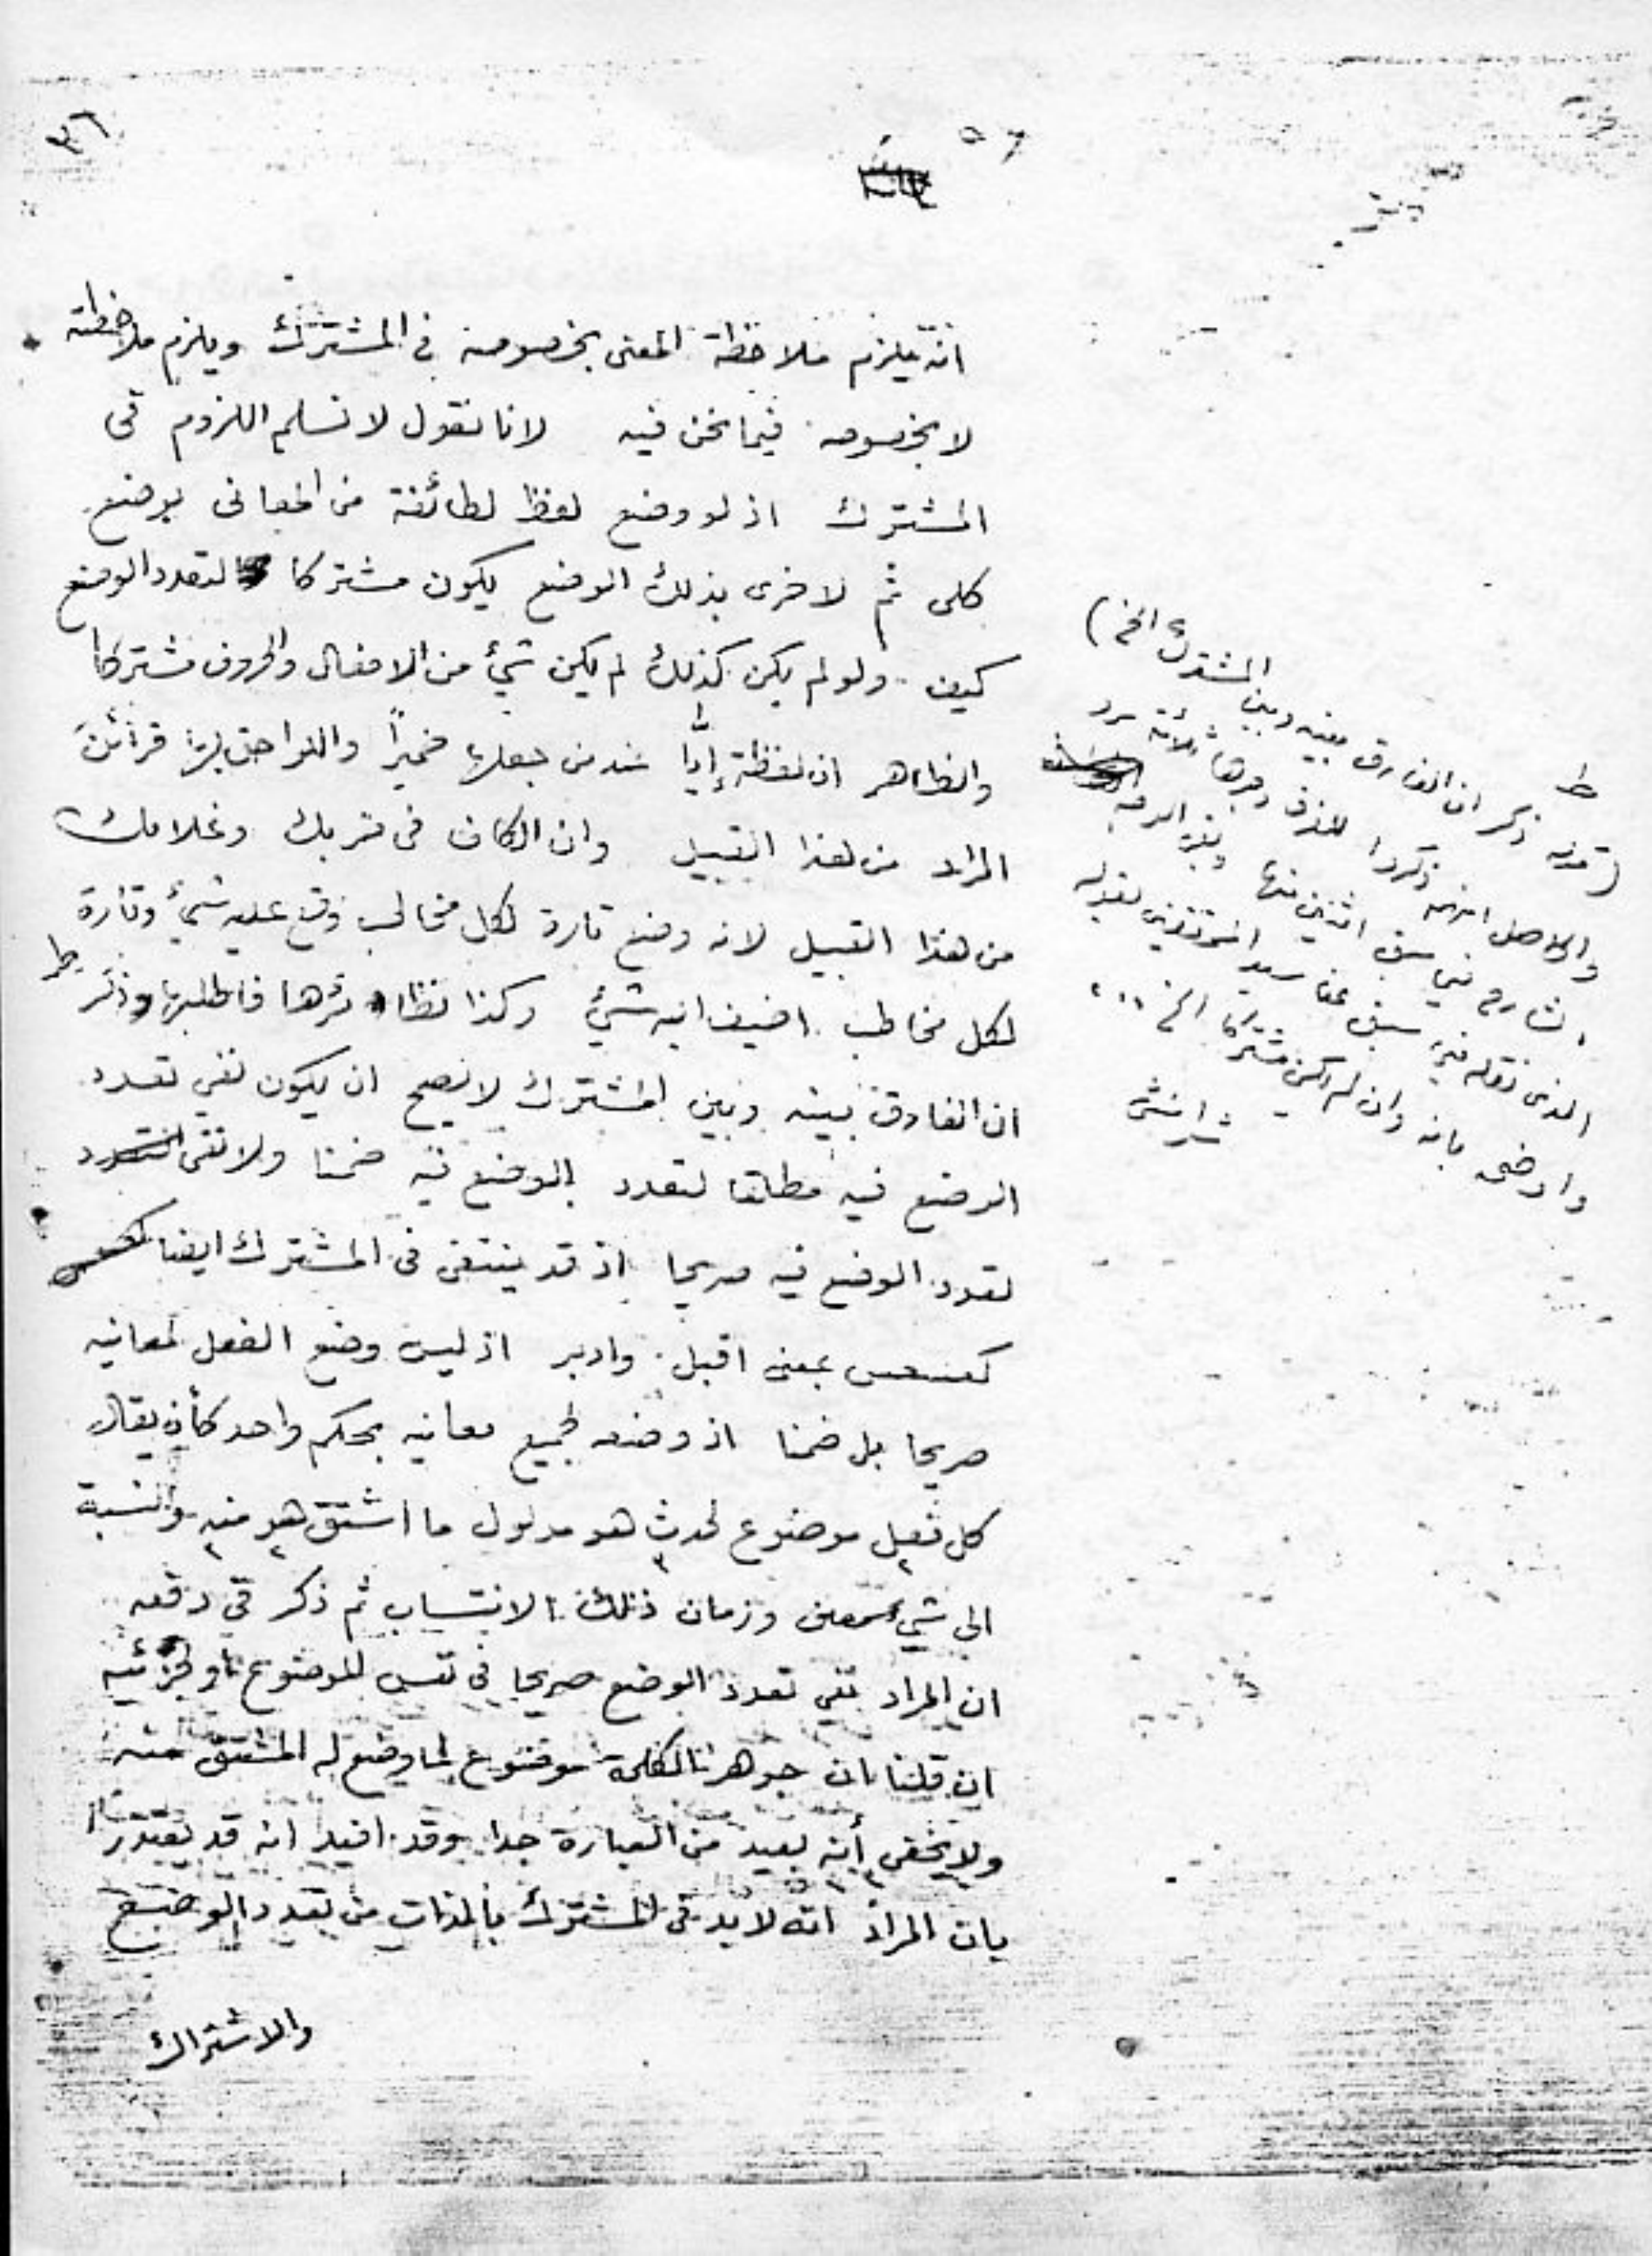 ٣٦
٥٦
انه يلزم ملاحظة المعنى بخصوصه في المشترك ويلزم ملاحظته
لا بخصوصه فيما نحن فيه لانا نقول لا نسلم اللزوم في
المشترك اذ لو وضع لفظ لطائفة من المعانى بوضع
كلى ثم لاخرى بذلك الوضع يكون مشتركا لتعدد الوضع
كيف ولو لم يكن كذلك لم يكن شئ من الافعال والحروف مشتركا
والظاهر ان لفظة إيّا عند من جعلها ضميرًا واللواحق لها قرائن
المراد من هذا القبيل وان الكاف فى ضربك وغلامك
من هذا القبيل لانه وضع تارة لكل مخاطب وقع عليه شئ وتارة
لكل مخاطب اضيف اليه شئ وكذا نظائرها فاطلبها وذكر ط
ان الفارق بينه وبين المشترك لا يصح ان يكون نفى تعدد
الوضع فيه مطلقا لتعدد الوضع فيه ضمنا ولا نفى
تعدد الوضع فيه صريحا اذ قد ينتفى فى المشترك ايضا
كعسعس بمعنى اقبل وادبر اذ ليس وضع الفعل لمعانيه
صريحا بل ضمنا اذ وضعه لجميع معانيه بحكم واحد كأن يقال
كل فعل موضوع لحدث هو مدلول ما اشتق هو منه والنسبة
الى شئ معين وزمان ذلك الانتساب ثم ذكر فى دفعه
ان المراد نفى تعدد الوضع صريحا فى نفس الموضوع او لجزئيه
ان قلنا ان جوهر الكلمة موضوع لما وضع له المشتق منه
ولا يخفى أنه بعيد من العبارة جدا وقد افيد انه قد يعتذر
بان المراد انه لا بد فى المشترك بالذات من تعدد الوضع
والاشتراك
ط
(قوله ذكر ان الفارق بينه وبين المشترك الخ)
والحاصل انهم ذكروا للفرق وجوها ثلاثة
الشارح فيما سبق اثنين منها
الذى نقله فيما سبق عن سيد المحققين بقوله
وارضى بانه وان لم يكن مشتركا الخ